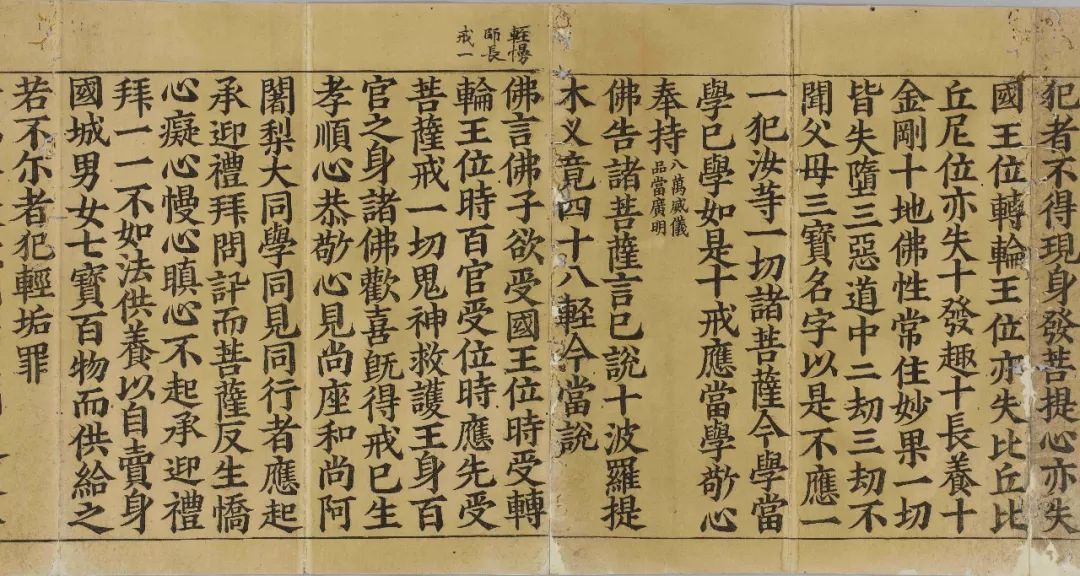 犯者不得現身發菩提心亦失
國王位轉輪王位亦失比丘比
丘尼位亦失十發趣十長養十
金剛十地佛性常住妙果一切
皆失墮三惡道中二劫三劫不
聞父母三寶名字以是不應一
一犯汝等一切諸菩薩今學當
學已學如是十戒應當學敬心
奉持八萬威儀
品當廣明
佛告諸菩薩言已說十波羅提
木叉竟四十八輊今當說
輊慢
師長
戒一
佛言佛子欲受國王位時受轉
輪王位時百官受位時應先受
菩薩戒一切鬼神救護王身百
官之身諸佛歡喜旣得戒已生
孝順心恭敬心見尚座和尚阿
闍梨大同學同見同行者應起
承迎禮拜問訊而菩薩反生憍
心癡心慢心瞋心不起承迎禮
拜一一不如法供養以自賣身
國城男女七寶百物而供給之
若不尒者犯輕垢罪